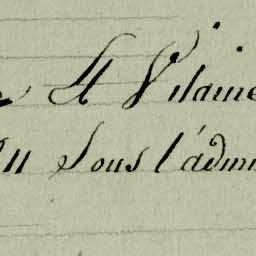 & Vilaine
11 Sous l'admi